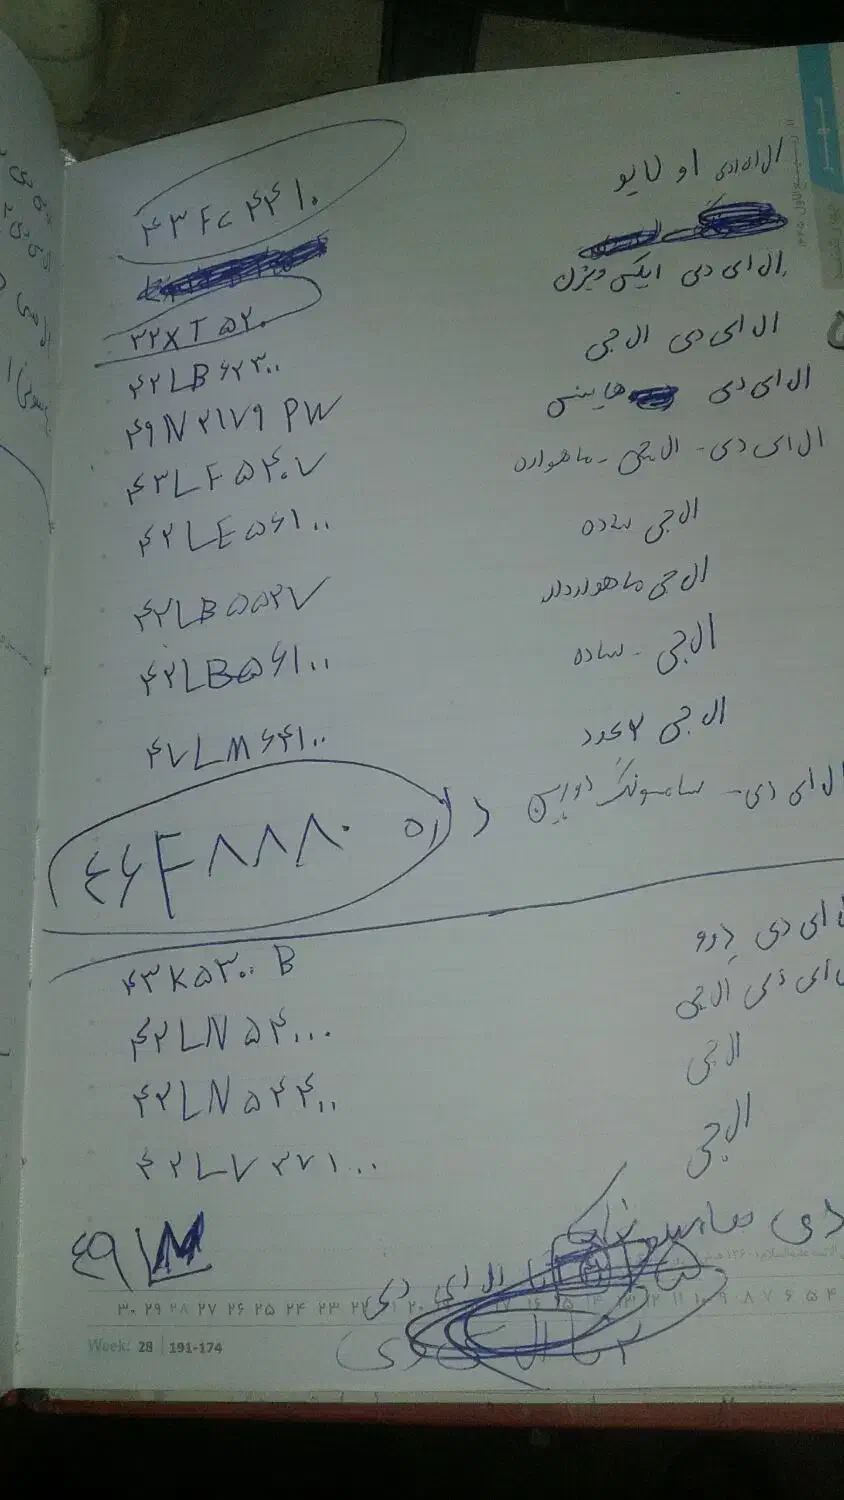 ال ای دی او لایو ۴۳Fc۴۴۱۰
ال ای دی ایکس ویژن ۳۲XT۵۲۰
ال ای دی ال جی ۴۲LB۶۲۳۰۰
ال ای دی هایسنس ۴۹N۲۱۷۹PW
ال ای دی - ال جی - ماهواره ۴۳LF۵۴۰۷
ال جی ساده ۴۲LE۵۶۱۰۰
ال جی ماهواره دار ۴۲LB۵۵۲۷
ال جی - ساده ۴۲LB۵۶۱۰۰
ال جی ۲ عدد ۴۷LM۶۴۱۰۰
ال ای دی - سامسونگ دوربین داره ۴۶F۸۸۸۰
ای دی دوو ۴۳K۵۳۰۰B
ای دی ال جی ۴۲LN۵۴۰۰۰
ال جی ۴۲LN۵۴۴۰۰
ال جی ۴۲LV۳۷۱۰۰
دی سامسونگ ۴۹LM
تا ال ای دی
۳۰ ۲۹ ۲۸ ۲۷ ۲۶ ۲۵ ۲۴ ۲۳ ۲۲ ۲۰ ۱۷ ۱۶ ۱۵ ۱۴ ۱۳ ۱۲ ۱۱ ۱۰ ۹ ۸ ۷ ۶ ۵ ۴
۲ تا ال دی
Week: 28 | 191-174